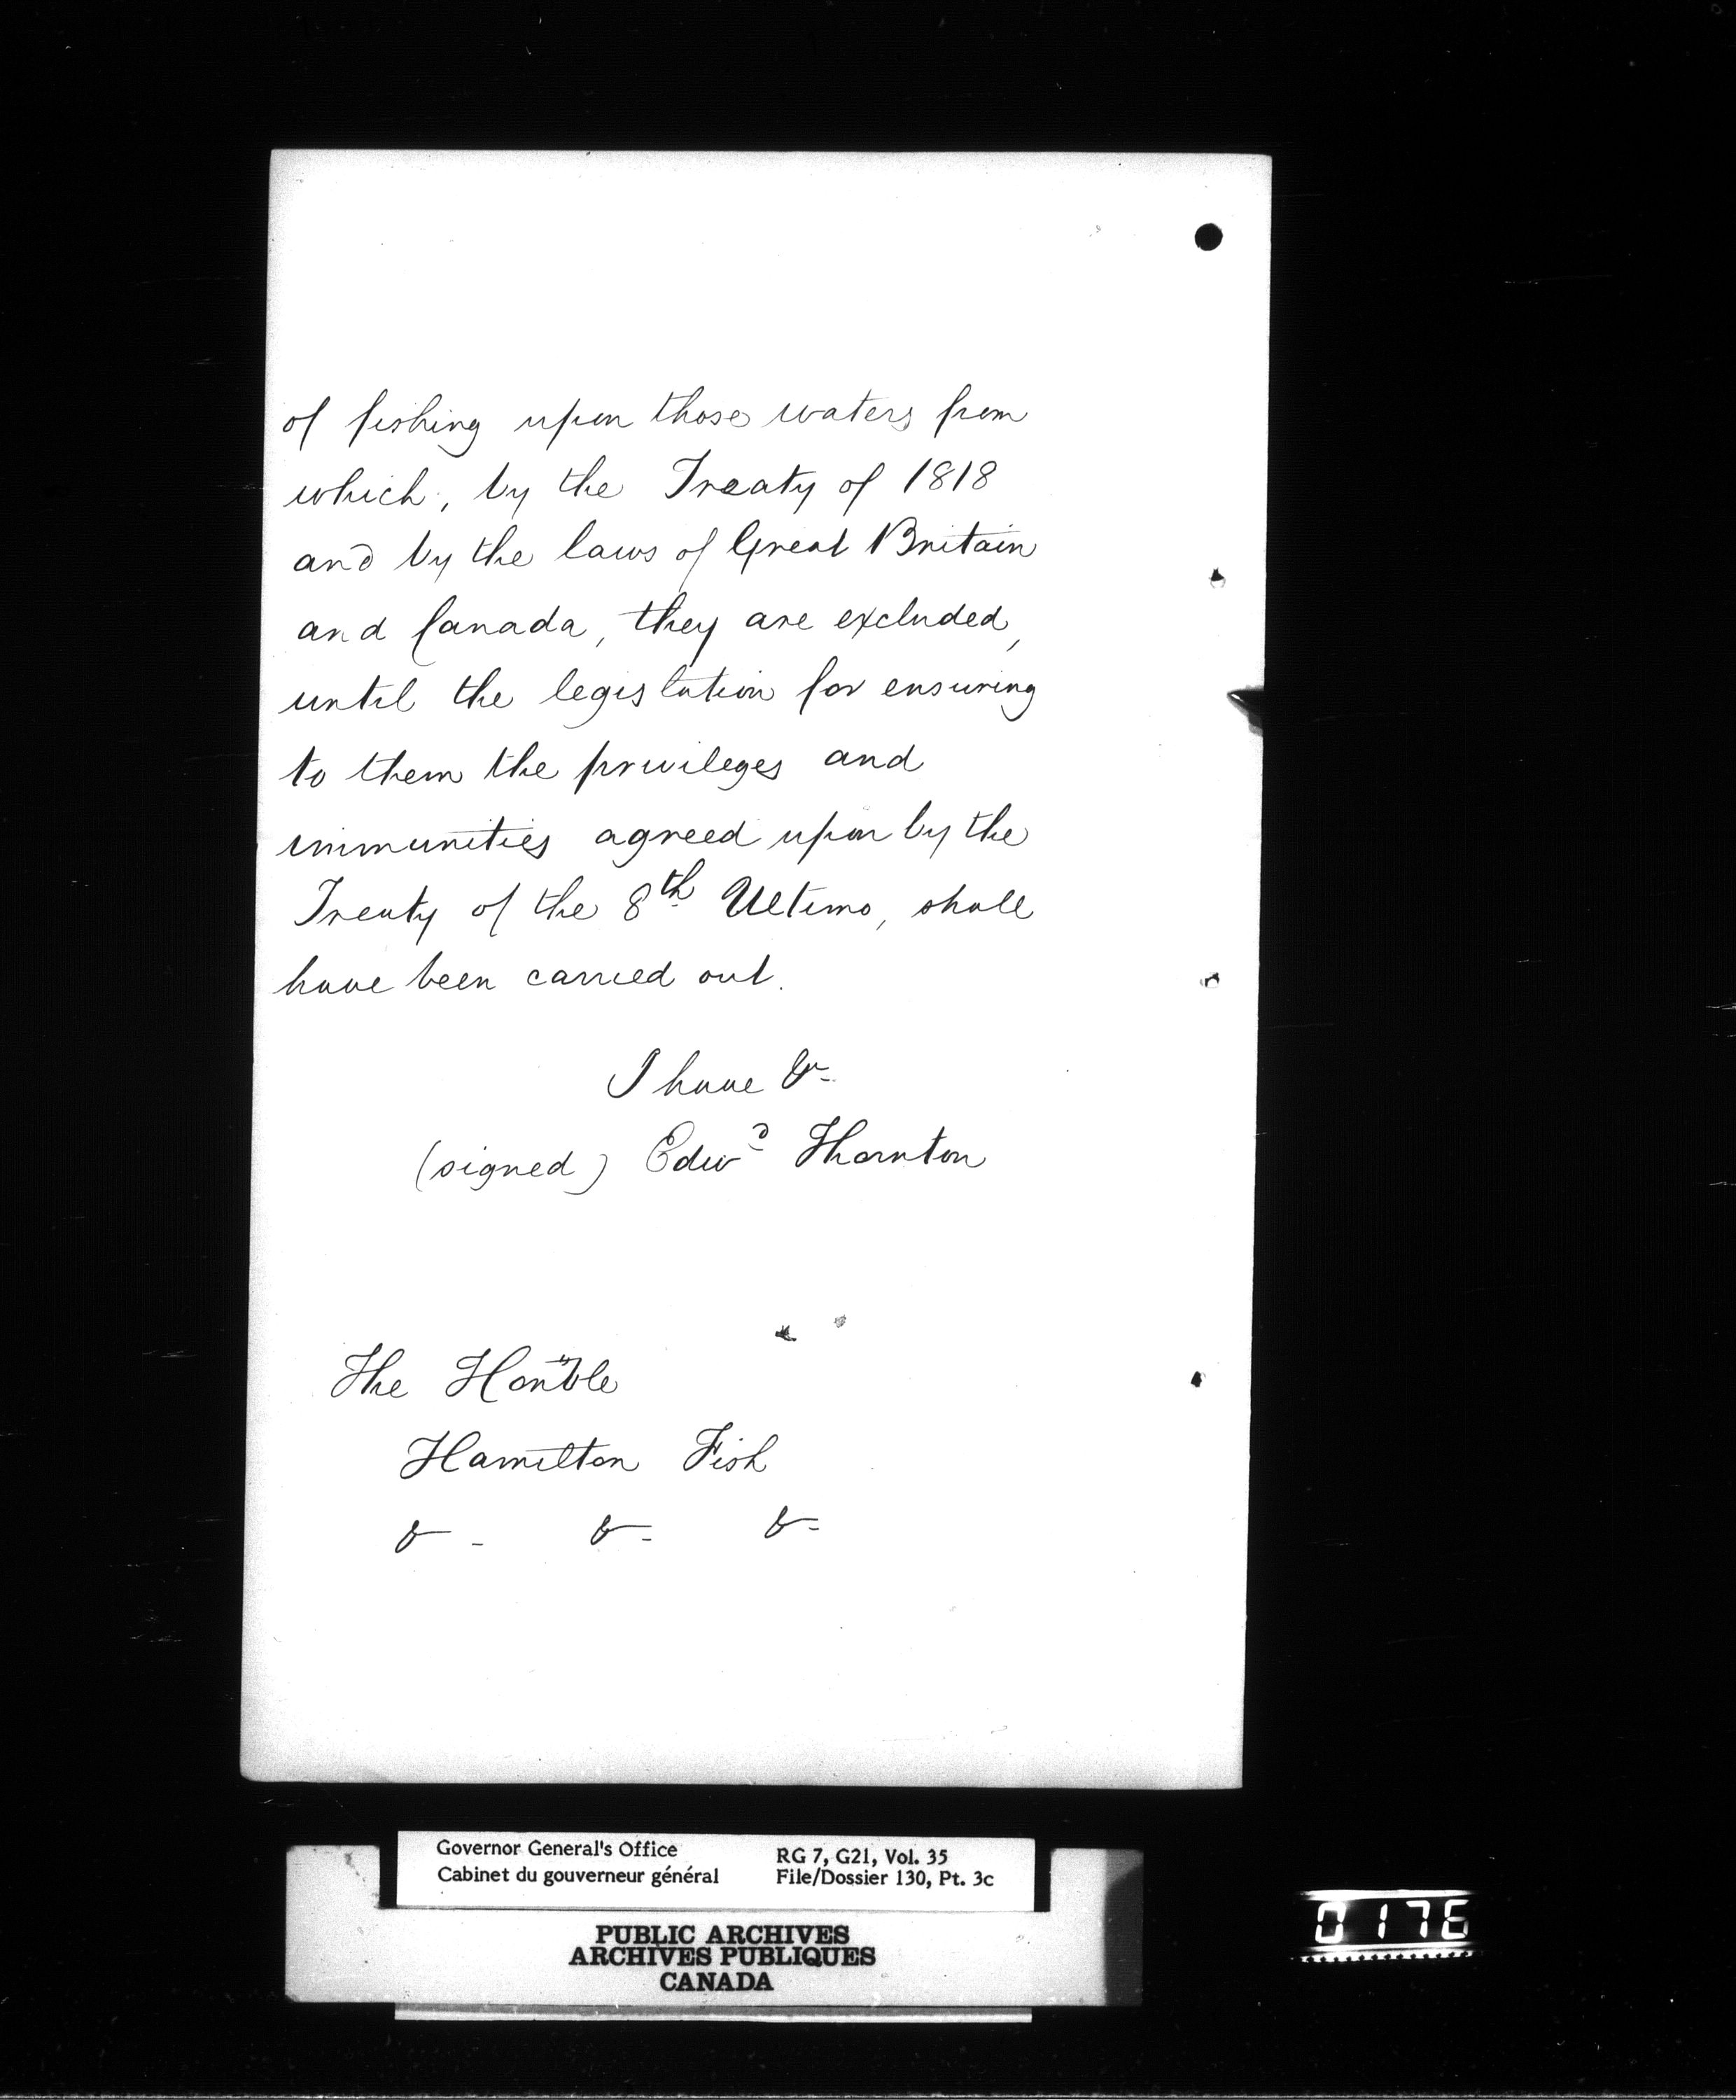 of fishing upon those waters from
which, by the Treaty of 1818
and by the laws of Great Britain
and Canada, they are excluded,
until the legislation for ensuring
to them the privileges and
immunities agreed upon by the
Treaty of the 8th Ultimo, shall
have been carried out.
I have &c
(signed) Edwd Thornton
The Honble
Hamilton Fish
&c &c &c
Governor General's Office
Cabinet du gouverneur général
RG 7, G21, Vol. 35
File/Dossier 130, Pt. 3c
PUBLIC ARCHIVES
ARCHIVES PUBLIQUES
CANADA
0176